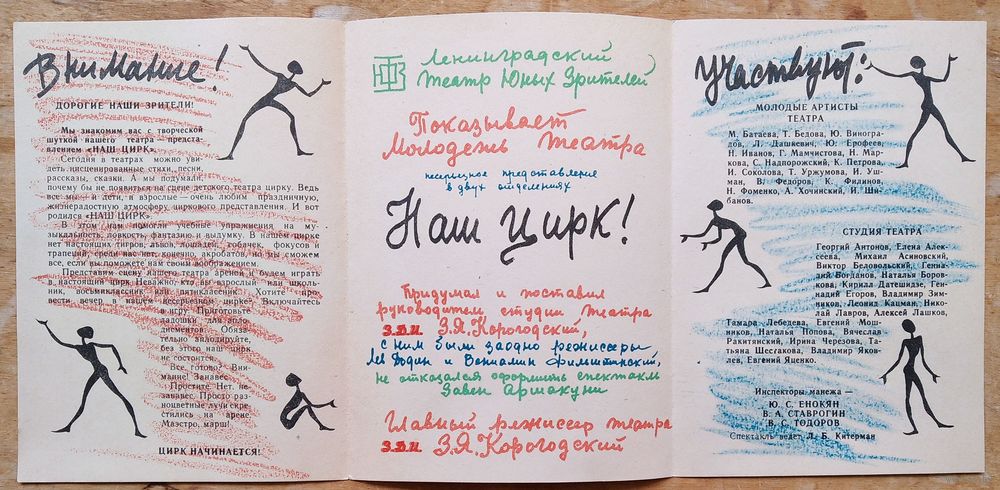 Внимание!
ДОРОГИЕ НАШИ ЗРИТЕЛИ!
Мы знакомим вас с творческой
шуткой нашего театра — предста-
влением «НАШ ЦИРК».
Сегодня в театрах можно уви-
деть инсценированные стихи, песни,
рассказы, сказки. А мы подумали,
почему бы не появиться на сцене детского театра цирку. Ведь
все мы — и дети, и взрослые — очень любим праздничную,
жизнерадостную атмосферу циркового представления. И вот
родился «НАШ ЦИРК».
В этом нам помогли учебные упражнения на му-
зыкальность, ловкость, фантазию и выдумку. В нашем цирке
нет настоящих тигров, львов, лошадей, собачек, фокусов и
трапеций, среди нас нет, конечно, акробатов, но мы сможем
все, если вы поможете нам своим воображением.
Представим сцену нашего театра ареной и будем играть
в настоящий цирк. Неважно, кто вы: взрослый или школь-
ник, восьмиклассник или пятиклассник! Хотите про-
вести вечер в нашем несерьезном цирке? Включайтесь
в игру. Приготовьте
ладошки для апло-
дисментов. Обяза-
тельно аплодируйте,
без этого наш цирк
не состоится.
Все готово? Вни-
мание! Занавес...
Простите! Нет, не
занавес. Просто раз-
ноцветные лучи скре-
стились на арене.
Маэстро, марш!
ЦИРК НАЧИНАЕТСЯ!
Ленинградский
Театр Юных Зрителей
Показывает
Молодежь театра
несерьезное представление
в двух отделениях
Наш цирк!
Придумал и поставил
руководитель студии театра
з.д.и З.Я.Корогодский,
с ним были заодно режиссеры
Лев Додин и Вениамин Фильштинский,
не отказался оформить спектакль
Завен Аршакуни
Главный режиссер театра
з.д.и З.Я.Корогодский
Участвуют:
МОЛОДЫЕ АРТИСТЫ
ТЕАТРА
М. Батаева, Т. Бедова, Ю. Виногра-
дов, Л. Дашкевич, Ю. Ерофеев,
Н. Иванов, Г. Мамчистова, Н. Мар-
кова, С. Надпорожский, К. Петрова,
И. Соколова, Т. Уржумова, И. Уш-
ман, В. Федоров, К. Филинов,
Н. Фоменко, А. Хочинский, И. Ши-
банов.
СТУДИЯ ТЕАТРА
Георгий Антонов, Елена Алек-
сеева, Михаил Асиновский,
Виктор Беловольский, Генна-
дий Богданов, Наталья Боров-
кова, Кирилл Датешидзе, Ген-
надий Егоров, Владимир Зим-
ников, Леонид Кацман, Нико-
лай Лавров, Алексей Лашков,
Тамара Лебедева, Евгений Мош-
ников, Наталья Попова, Вячеслав
Ракитянский, Ирина Черезова, Та-
тьяна Шестакова, Владимир Яков-
лев, Евгений Яценко.
Инспекторы манежа —
Ю. С. ЕНОКЯН
В. А. СТАВРОГИН
В. С. ТОДОРОВ
Спектакль ведет Л. Б. Китерман